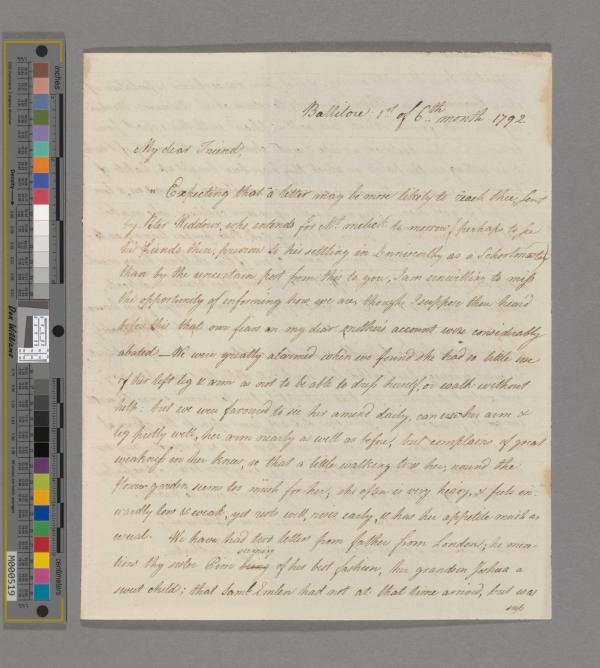 Ballitore 1st of 6th month 1792
My dear Friend,
Expecting that a letter may be more likely to reach thee, sent
by Peter Widdows, who intends for Mt. melick to morrow (perhaps to see
his friends there, previous to his settling in Enniscorthy as a Schoolmaster)
than by the uncertain post from this to you, I am unwilling to miss
the opportunity of informing how we are, though I suppose thou heard
before this that our fears on my dear mother's account were considerably
abated — We were greatly alarmed when we found she had so little use
of her left leg & arm as not to be able to dress herself, or walk without
help: but we were favoured to see her amend daily, can use her arm &
leg pretty well, her arm nearly as well as before, but complains of great
weakness in her knees, so that a little walking tires her, round the
flower-garden seems too much for her; she often is very heavy, & feels in-
wardly low & weak, yet rests well, rises early, & has her appetite much as
usual. We have had two letters from father from London; he men-
tions thy sister Pim seeing of her best fashion, her grandson Joshua a
sweet child; that Saml. Emlen had not at that time arrived, but was
inches
centimeters
Density
Don Williams
M000519